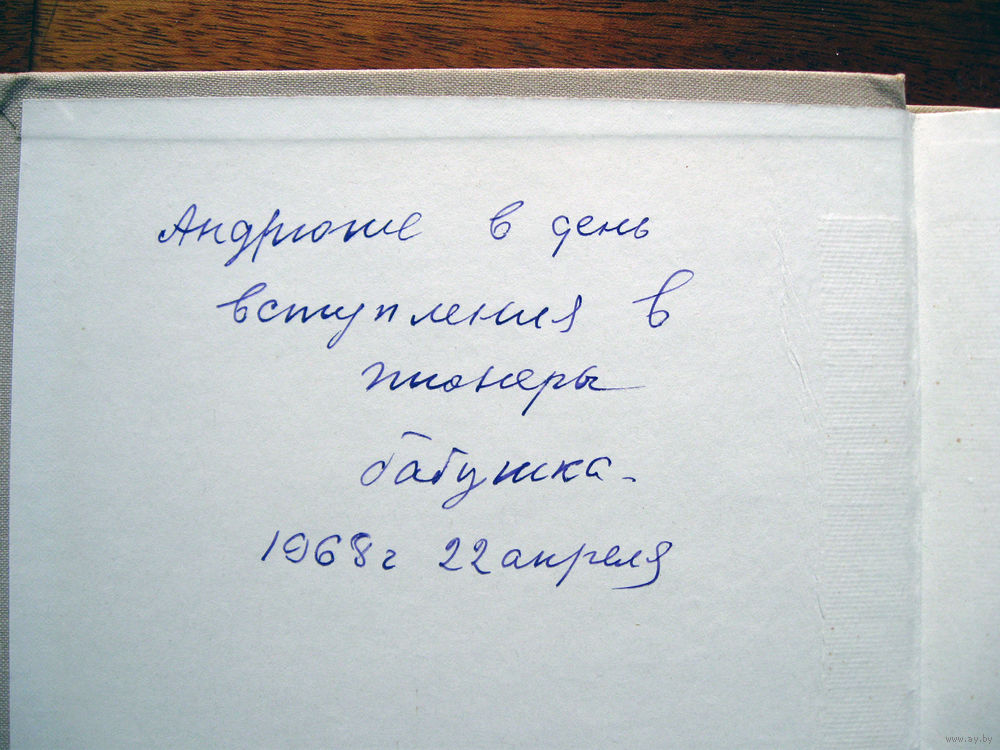 Андрюше в день
вступления в
пионеры
бабушка.
1968г 22 апреля
www.ay.by